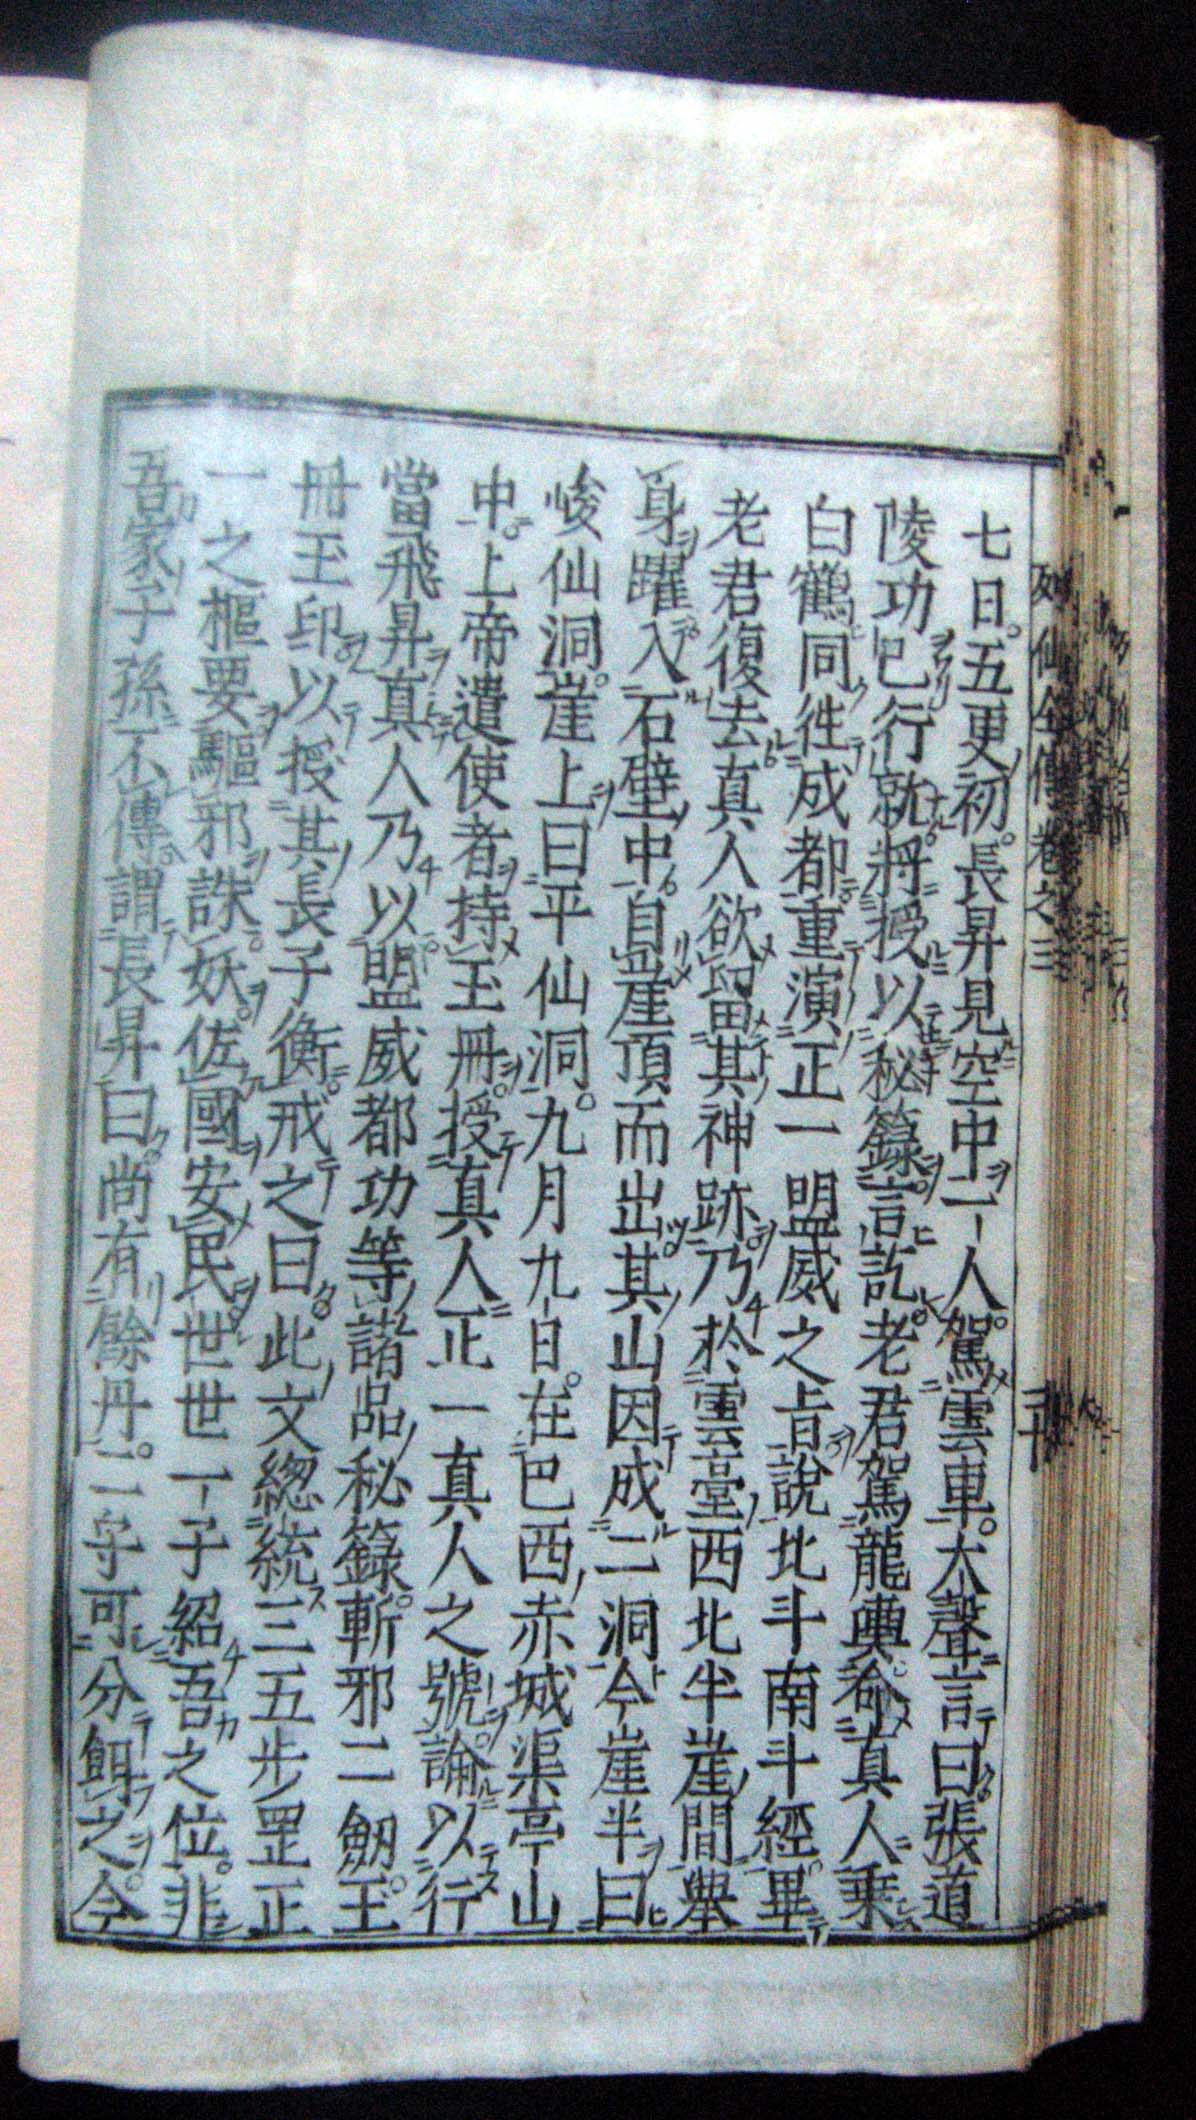 七日五更初長昇見空中一人駕雲車大聲言曰張道
陵功已行就將授以秘籙言訖老君駕龍輿命真人乘
白鶴同徃成都重演正一盟威之旨說北斗南斗經畢
老君復去真人欲留其神跡乃於雲臺西北半崖間舉
身躍入石壁中自崖頂而出其山因成二洞今崖半曰
峻仙洞崖上曰平仙洞九月九日在巴西赤城渠亭山
中上帝遣使者持玉冊授真人正一真人之號論以行
當飛昇真人乃以盟威都功等諸品秘籙斬邪二劔玉
冊玉印以授其長子衡戒之曰此文緫統三五步罡正
一之樞要驅邪誅妖佐國安民世世一子紹吾之位非
吾家子孫不傳謂長昇曰尚有餘丹二字可分餌之今
列仙全傳卷之三